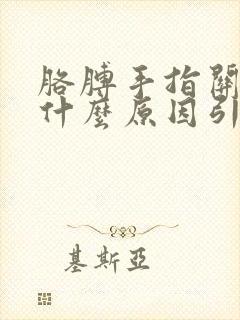 胳膊手指關
什麼原因引
基斯亞